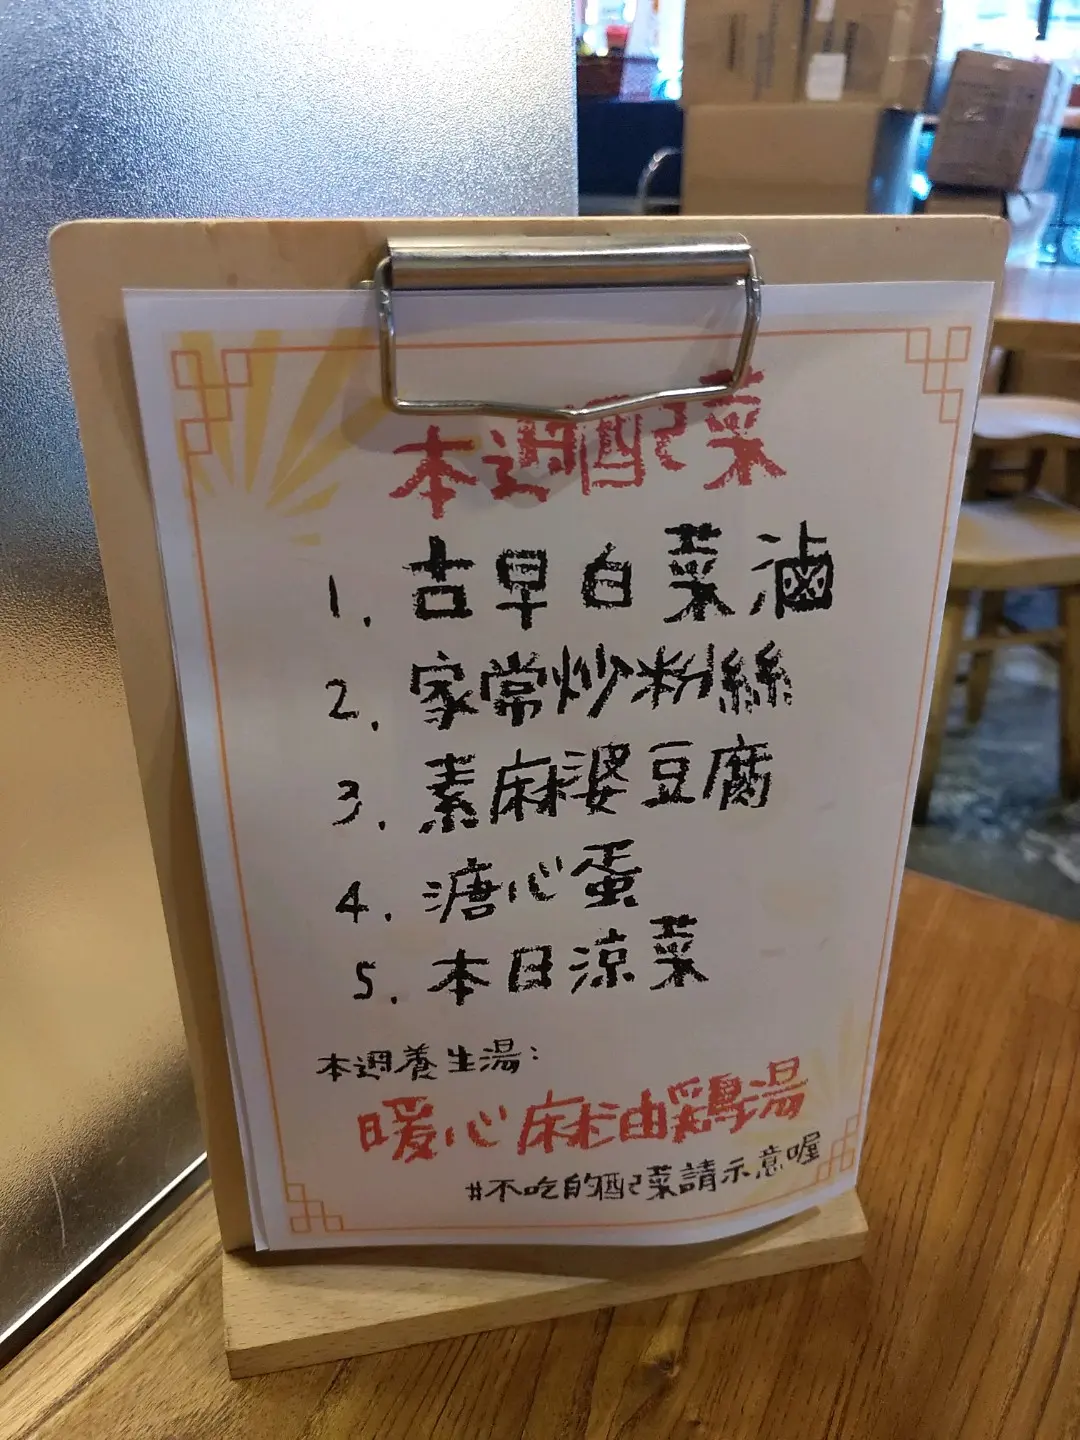 本週配菜
1. 古早白菜滷
2. 家常炒粉絲
3. 素麻婆豆腐
4. 溏心蛋
5. 本日涼菜
本週養生湯:
暖心麻油鷄湯
#不吃的配菜請示意喔